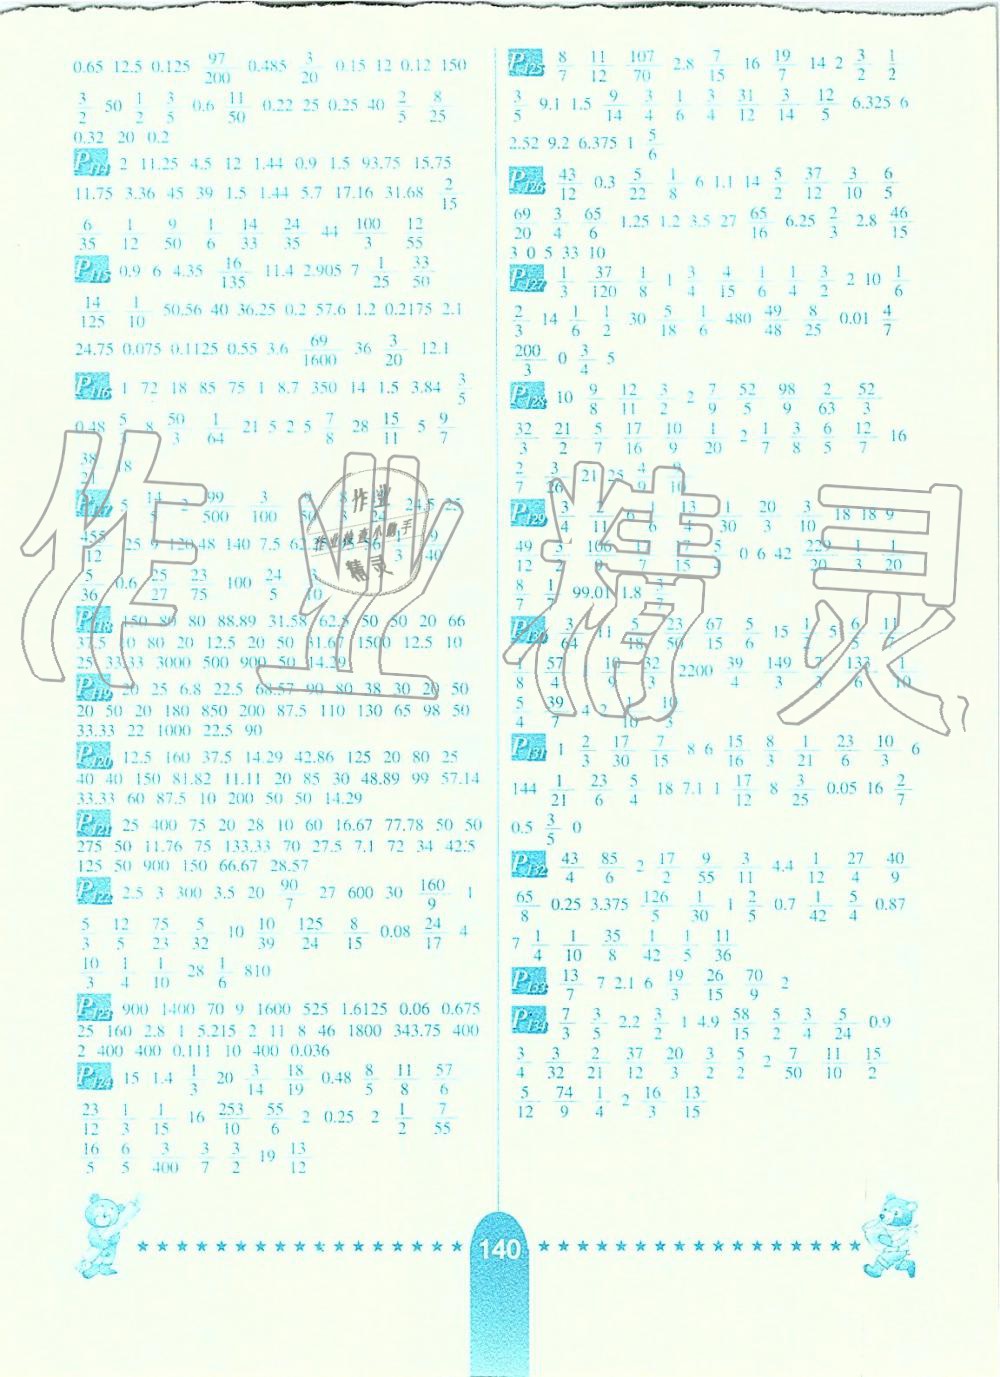 0.65 12.5 0.125 97/200 0.485 3/20 0.15 12 0.12 150
3/2 50 1/2 3/5 0.6 11/50 0.22 25 0.25 40 2/5 8/25
0.32 20 0.2
P114 2 11.25 4.5 12 1.44 0.9 1.5 93.75 15.75
11.75 3.36 45 39 1.5 1.44 5.7 17.16 31.68 2/15
6/35 1/12 9/50 1/6 14/33 24/35 44 100/3 12/55
P115 0.9 6 4.35 16/135 11.4 2.905 7 1/25 33/50
14/125 1/10 50.56 40 36.25 0.2 57.6 1.2 0.2175 2.1
24.75 0.075 0.1125 0.55 3.6 69/1600 36 3/20 12.1
P116 1 72 18 85 75 1 8.7 350 14 1.5 3.84 3/5
0.48 8 50/3 1/64 21 5 2 5 7/8 28 15/11 5 9/7
38/21 18
5 2 99/500 3/100 24.5 25
25 9 120 48 140 7.5
5/36 0.6 25/27 23/75 100 24/5
P118 150 80 80 88.89 31.58 62.5 50 50 20 66
10 80 20 12.5 20 50 31.67 1500 12.5 10
25 33.33 3000 500 900 50 14.29
P119 20 25 6.8 22.5 68.57 90 80 38 30 20 50
20 50 20 180 850 200 87.5 110 130 65 98 50
33.33 22 1000 22.5 90
P120 12.5 160 37.5 14.29 42.86 125 20 80 25
40 40 150 81.82 11.11 20 85 30 48.89 99 57.14
33.33 60 87.5 10 200 50 50 14.29
P121 25 400 75 20 28 10 60 16.67 77.78 50 50
275 50 11.76 75 133.33 70 27.5 7.1 72 34 42.5
125 50 900 150 66.67 28.57
P122 2.5 3 300 3.5 20 90/7 27 600 30 160/9 1
5/3 12/5 75/23 5/32 10 10/39 125/24 8/15 0.08 24/17 4
10/3 1/4 1/10 28 1/6 810
P123 900 1400 70 9 1600 525 1.6125 0.06 0.675
25 160 2.8 1 5.215 2 11 8 46 1800 343.75 400
2 400 400 0.111 10 400 0.036
P124 15 1.4 1/3 20 3/14 18/19 0.48 8/5 11/8 57/6
23/12 1/3 1/15 16 253/10 55/6 2 0.25 2 1/2 7/55
16/5 6/5 3/400 3/7 3/2 19 13/12
P125 8/7 11/12 107/70 2.8 7/15 16 19/7 14 2 3/2 1/2
3/5 9.1 1.5 9/14 3/4 1/6 3/4 31/12 3/14 12/5 6.325 6
2.52 9.2 6.375 1 5/6
P126 43/12 0.3 5/22 1/8 6 1.1 14 5/2 37/12 3/10 6/5
69/20 3/4 65/6 1.25 1.2 3.5 27 65/16 6.25 2/3 2.8 46/15
3 0 5 33 10
P127 1/3 37/120 1/8 1 3/4 4/15 1/6 1/4 3/2 2 10 1/6
2/3 14 1/6 1/2 30 5/18 1/6 480 49/48 8/25 0.01 4/7
200/3 0 3/4 5
P128 10 9/8 12/11 3/2 2 7/9 52/5 98/9 2/63 52/3
32/3 21/2 5/7 17/16 10/9 1/20 2 1/7 3/8 6/5 12/7 16
2/7 21 25
P129 3/4 2/11 6 1/6 13/4 1/30 20/3 3/10 18 18 9
49/12 0 6 42 229/20 1/3 1/20
8/7 1/7 99.01 1.8 3/7
P130 3/64 11 5/18 23/50 67/15 5/6 15
57/4 32/3 2200 39/4 149/3 133/6 1/10
5/4 39/7 4 2
P131 1 2/3 17/30 7/15 8 6 15/16 8/3 1/21 23/6 10/3 6
144 1/21 23/6 5/4 18 7.1 1 17/12 8 3/25 0.05 16 2/7
0.5 3/5 0
P132 43/4 85/6 2 17/2 9/55 3/11 4.4 1/12 27/4 40/9
65/8 0.25 3.375 126/5 1/30 1 2/5 0.7 1/42 5/4 0.87
7 1/4 1/10 35/8 1/42 1/5 11/36
P133 13/7 7 2.1 6 19/3 26/15 70/9 2
P134 7/3 3/5 2.2 3/2 1 4.9 58/15 5/2 3/4 5/24 0.9
3/4 3/32 2/21 37/12 20/3 3/2 5/2 2 7/50 11/10 15/2
5/12 74/9 1/4 2 16/3 13/15
140
作业精灵
作业
作业检查小助手
精灵